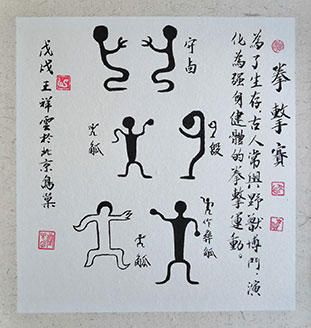 拳擊賽
為了生存古人常與野獸博鬥，演
化為強身健體的拳擊運動。
守卣
觚
觚
戊戌王祥雲於北京鳥巢